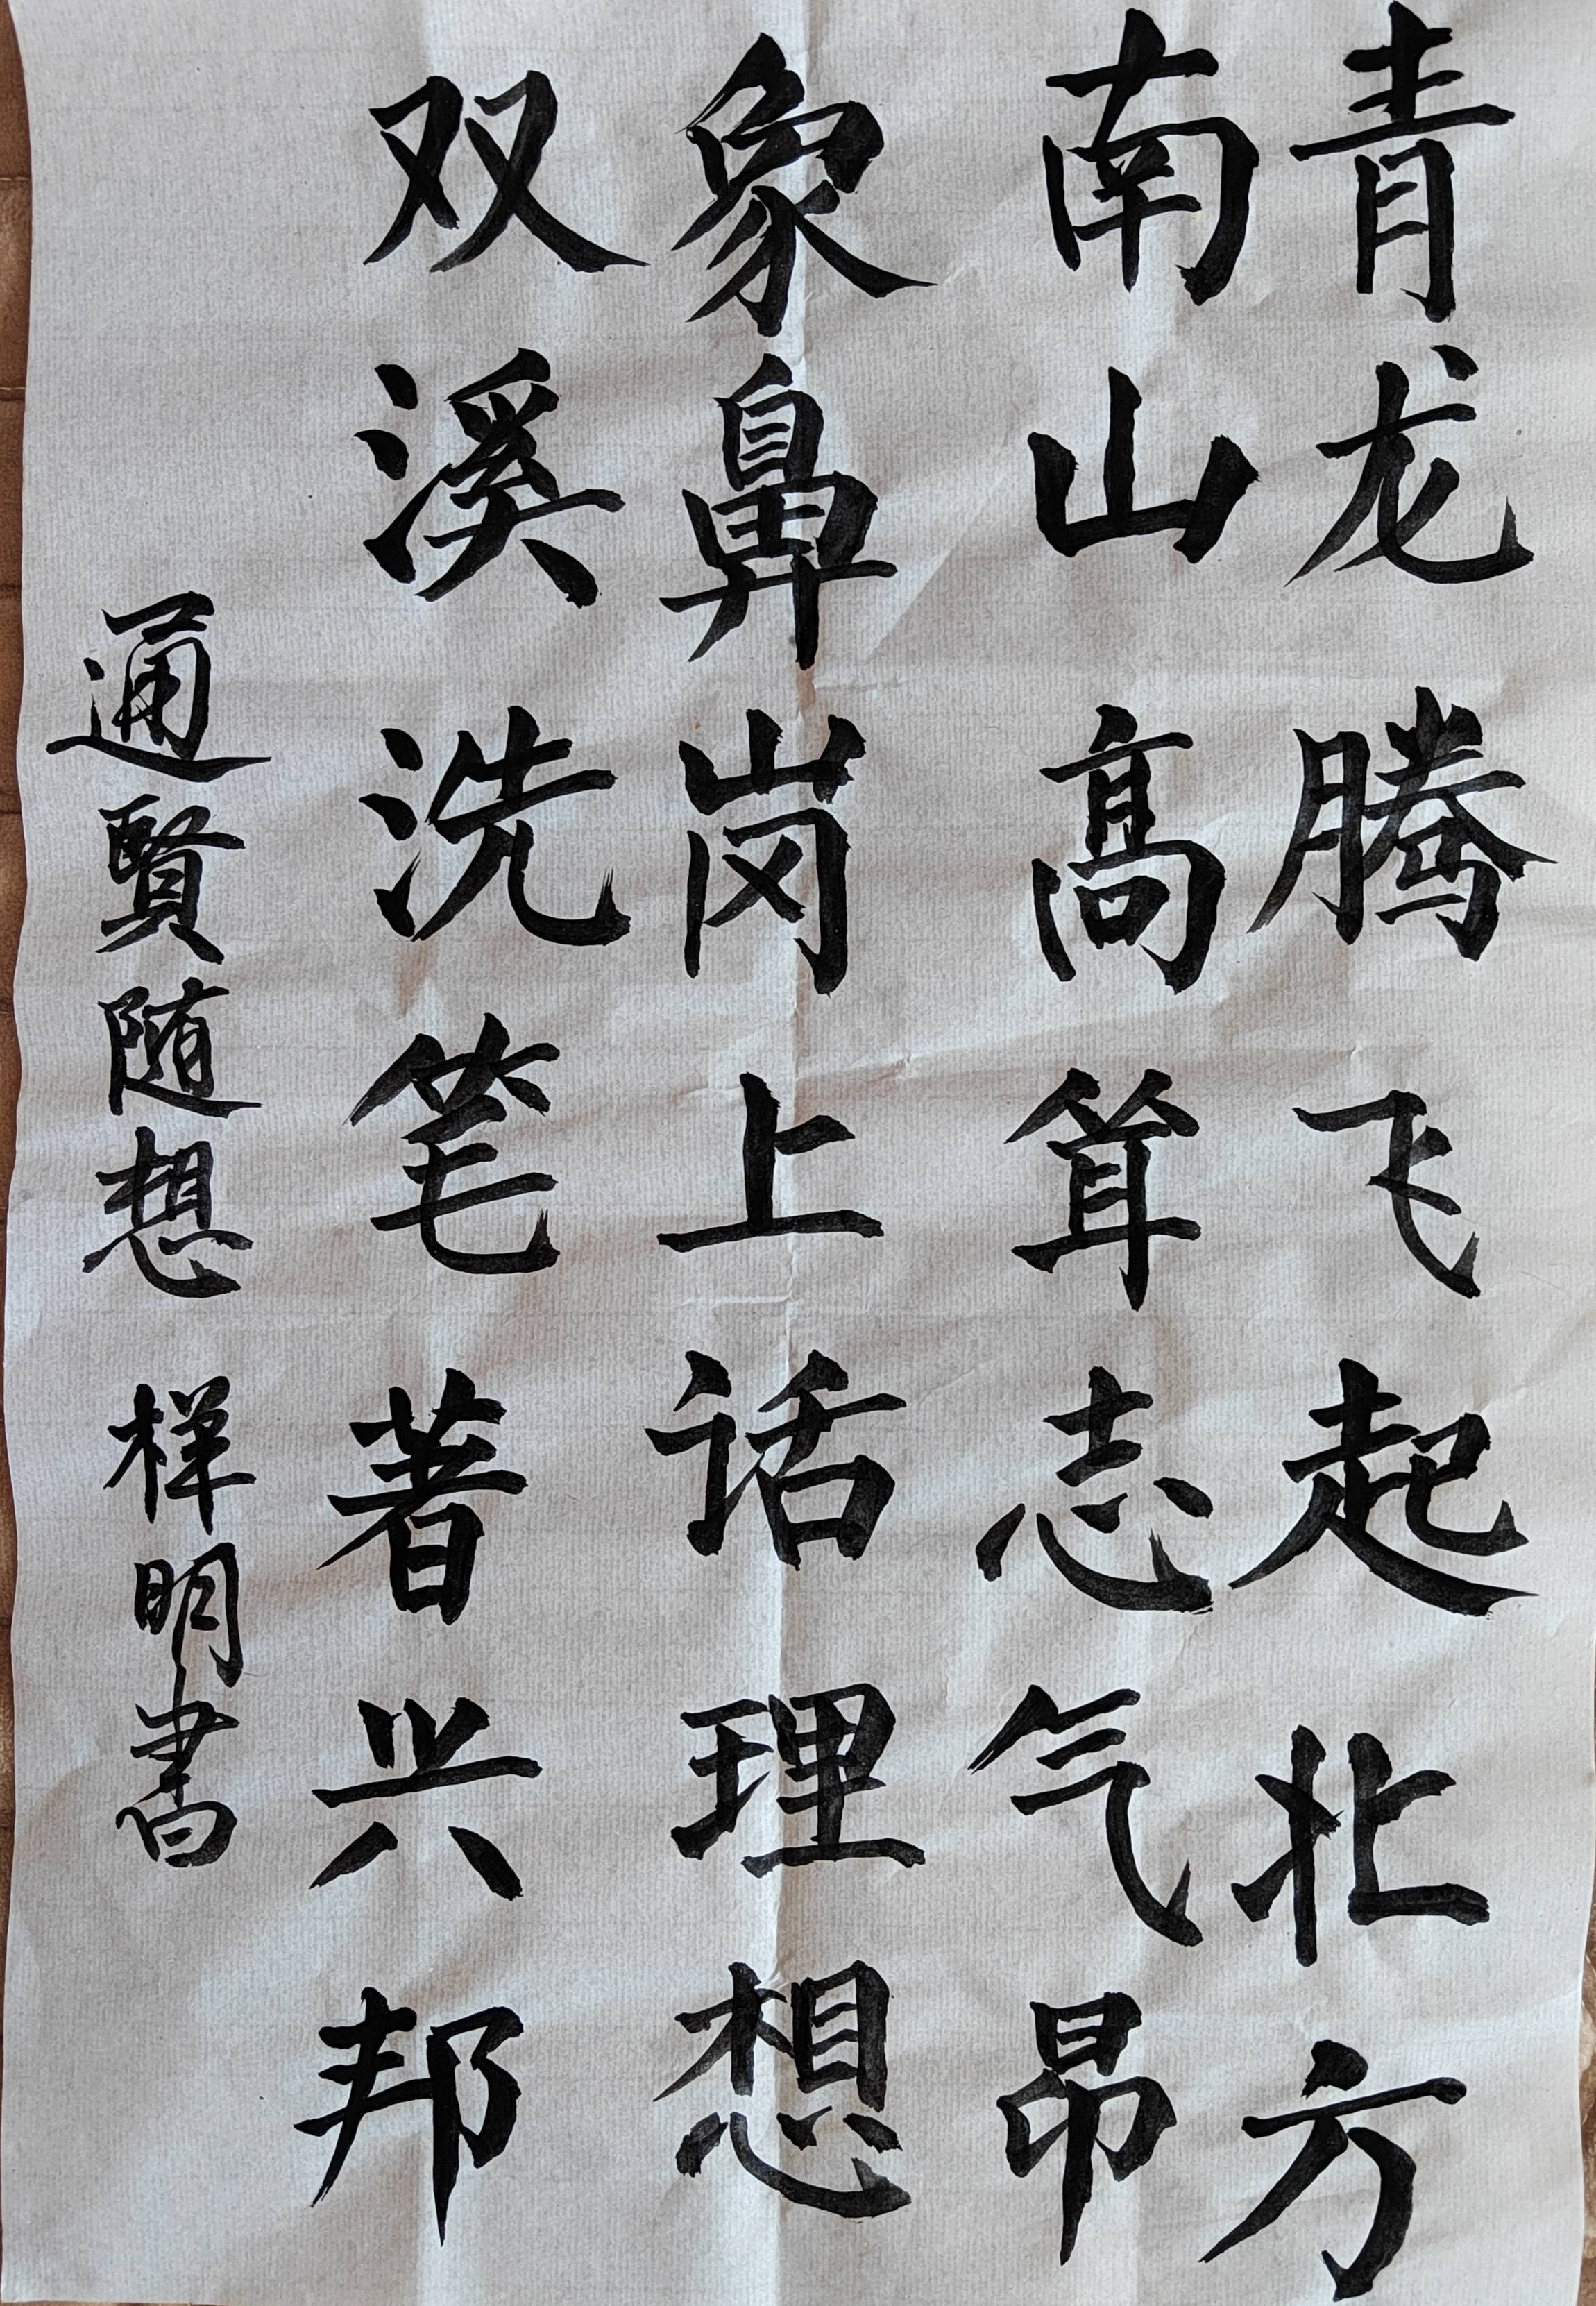 青龙腾飞起北方
南山高耸志气昂
象鼻岗上话理想
双溪洗笔著兴邦
通賢随想 样明書